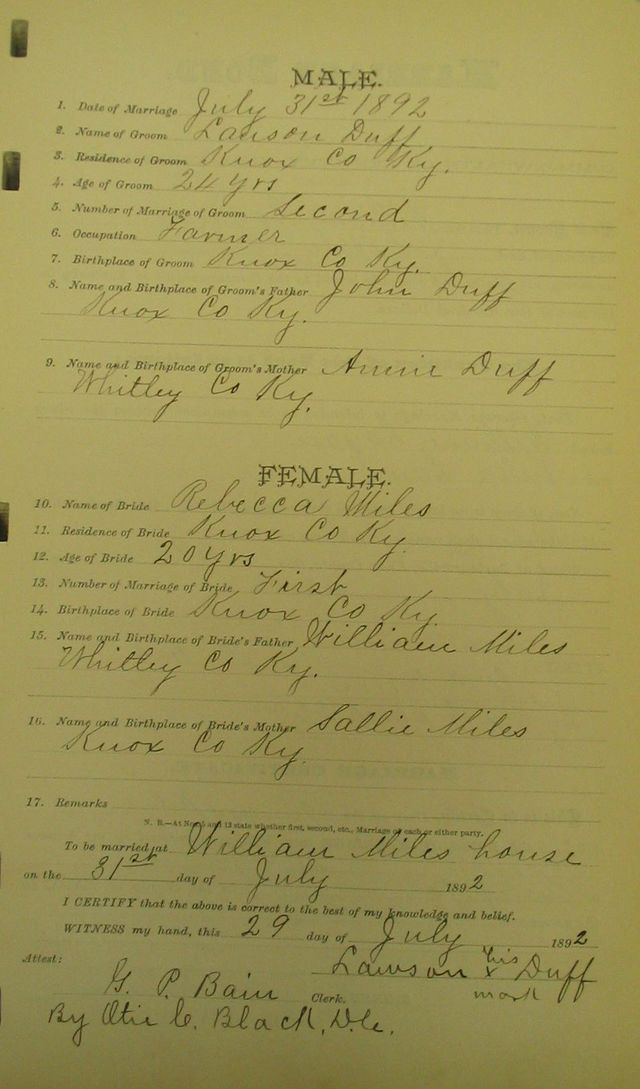 MALE.
1. Date of Marriage July 31st 1892
2. Name of Groom Lawson Duff
3. Residence of Groom Knox Co Ky.
4. Age of Groom 24 yrs
5. Number of Marriage of Groom Second
6. Occupation Farmer
7. Birthplace of Groom Knox Co Ky.
8. Name and Birthplace of Groom's Father John Duff
Knox Co Ky.
9. Name and Birthplace of Groom's Mother Annie Duff
Whitley Co Ky.
FEMALE.
10. Name of Bride Rebecca Miles
11. Residence of Bride Knox Co Ky.
12. Age of Bride 20 yrs
13. Number of Marriage of Bride First
14. Birthplace of Bride Knox Co Ky.
15. Name and Birthplace of Bride's Father William Miles
Whitley Co Ky.
16. Name and Birthplace of Bride's Mother Sallie Miles
Knox Co Ky.
17. Remarks
N. B.—At Nos. 5 and 13 state whether first, second, etc., Marriage of each or either party.
To be married at William Miles house
on the 31st day of July 1892
I CERTIFY that the above is correct to the best of my knowledge and belief.
WITNESS my hand, this 29 day of July 1892
Attest: Lawson his x mark Duff
G. P. Bain Clerk.
By C. Black, D.C.